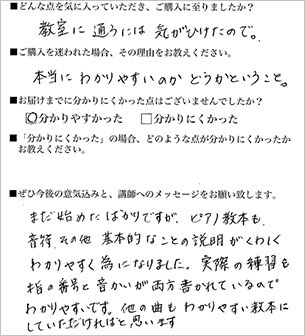 ■どんな点を気に入っていただき、ご購入に至りましたか?
教室に通うには気がひけたので。
■ご購入を迷われた場合、その理由をお教えください。
本当にわかりやすいのかどうかということ。
■お届けまでに分かりにくかった点はございませんでしたか?
分かりやすかった □分かりにくかった
■「分かりにくかった」の場合、どのような点が分かりにくかったか
お教えください。
■ぜひ今後の意気込みと、講師へのメッセージをお願い致します。
まだ始めたばかりですが、ピアノ教本も、
音符、その他 基本的なことの説明がくわしく
わかりやすく為になりました。実際の練習も
指の番号と音かいが両方書かれているので
わかりやすいです。他の曲もわかりやすい教本に
していただければと思います